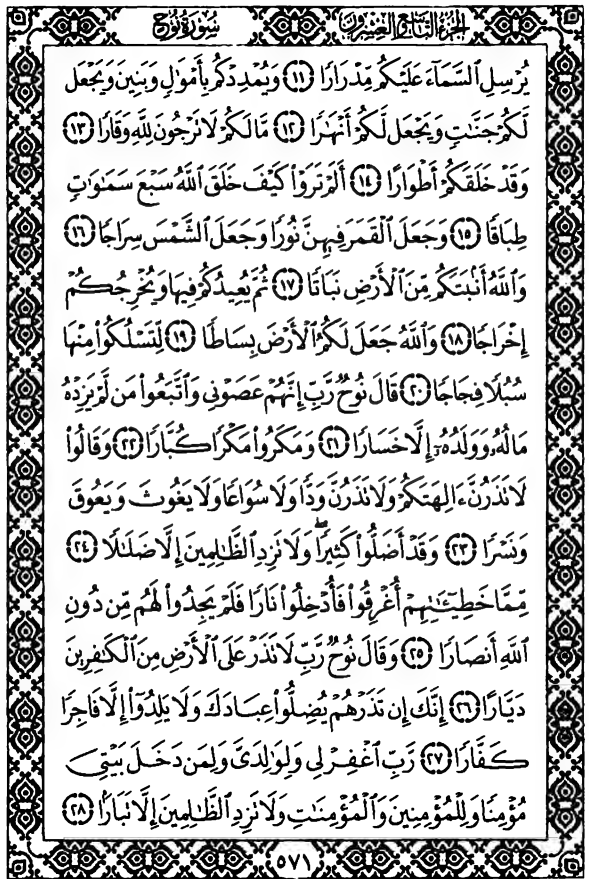 سورة نوح
الجزء التاسع والعشرون
يُرْسِلِ ٱلسَّمَآءَ عَلَيْكُم مِّدْرَارًا ۝١١ وَيُمْدِدْكُم بِأَمْوَٰلٍ وَبَنِينَ وَيَجْعَل
لَّكُمْ جَنَّٰتٍ وَيَجْعَل لَّكُمْ أَنْهَٰرًا ۝١٢ مَّا لَكُمْ لَا تَرْجُونَ لِلَّهِ وَقَارًا ۝١٣
وَقَدْ خَلَقَكُمْ أَطْوَارًا ۝١٤ أَلَمْ تَرَوْا۟ كَيْفَ خَلَقَ ٱللَّهُ سَبْعَ سَمَٰوَٰتٍ
طِبَاقًا ۝١٥ وَجَعَلَ ٱلْقَمَرَ فِيهِنَّ نُورًا وَجَعَلَ ٱلشَّمْسَ سِرَاجًا ۝١٦
وَٱللَّهُ أَنۢبَتَكُم مِّنَ ٱلْأَرْضِ نَبَاتًا ۝١٧ ثُمَّ يُعِيدُكُمْ فِيهَا وَيُخْرِجُكُمْ
إِخْرَاجًا ۝١٨ وَٱللَّهُ جَعَلَ لَكُمُ ٱلْأَرْضَ بِسَاطًا ۝١٩ لِّتَسْلُكُوا۟ مِنْهَا
سُبُلًا فِجَاجًا ۝٢٠ قَالَ نُوحٌ رَّبِّ إِنَّهُمْ عَصَوْنِى وَٱتَّبَعُوا۟ مَن لَّمْ يَزِدْهُ
مَالُهُۥ وَوَلَدُهُۥٓ إِلَّا خَسَارًا ۝٢١ وَمَكَرُوا۟ مَكْرًا كُبَّارًا ۝٢٢ وَقَالُوا۟
لَا تَذَرُنَّ ءَالِهَتَكُمْ وَلَا تَذَرُنَّ وَدًّا وَلَا سُوَاعًا وَلَا يَغُوثَ وَيَعُوقَ
وَنَسْرًا ۝٢٣ وَقَدْ أَضَلُّوا۟ كَثِيرًا ۖ وَلَا تَزِدِ ٱلظَّٰلِمِينَ إِلَّا ضَلَٰلًا ۝٢٤
مِّمَّا خَطِيٓـَٰٔتِهِمْ أُغْرِقُوا۟ فَأُدْخِلُوا۟ نَارًا فَلَمْ يَجِدُوا۟ لَهُم مِّن دُونِ
ٱللَّهِ أَنصَارًا ۝٢٥ وَقَالَ نُوحٌ رَّبِّ لَا تَذَرْ عَلَى ٱلْأَرْضِ مِنَ ٱلْكَٰفِرِينَ
دَيَّارًا ۝٢٦ إِنَّكَ إِن تَذَرْهُمْ يُضِلُّوا۟ عِبَادَكَ وَلَا يَلِدُوٓا۟ إِلَّا فَاجِرًا
كَفَّارًا ۝٢٧ رَّبِّ ٱغْفِرْ لِى وَلِوَٰلِدَىَّ وَلِمَن دَخَلَ بَيْتِىَ
مُؤْمِنًا وَلِلْمُؤْمِنِينَ وَٱلْمُؤْمِنَٰتِ وَلَا تَزِدِ ٱلظَّٰلِمِينَ إِلَّا تَبَارًۢا ۝٢٨
٥٧١